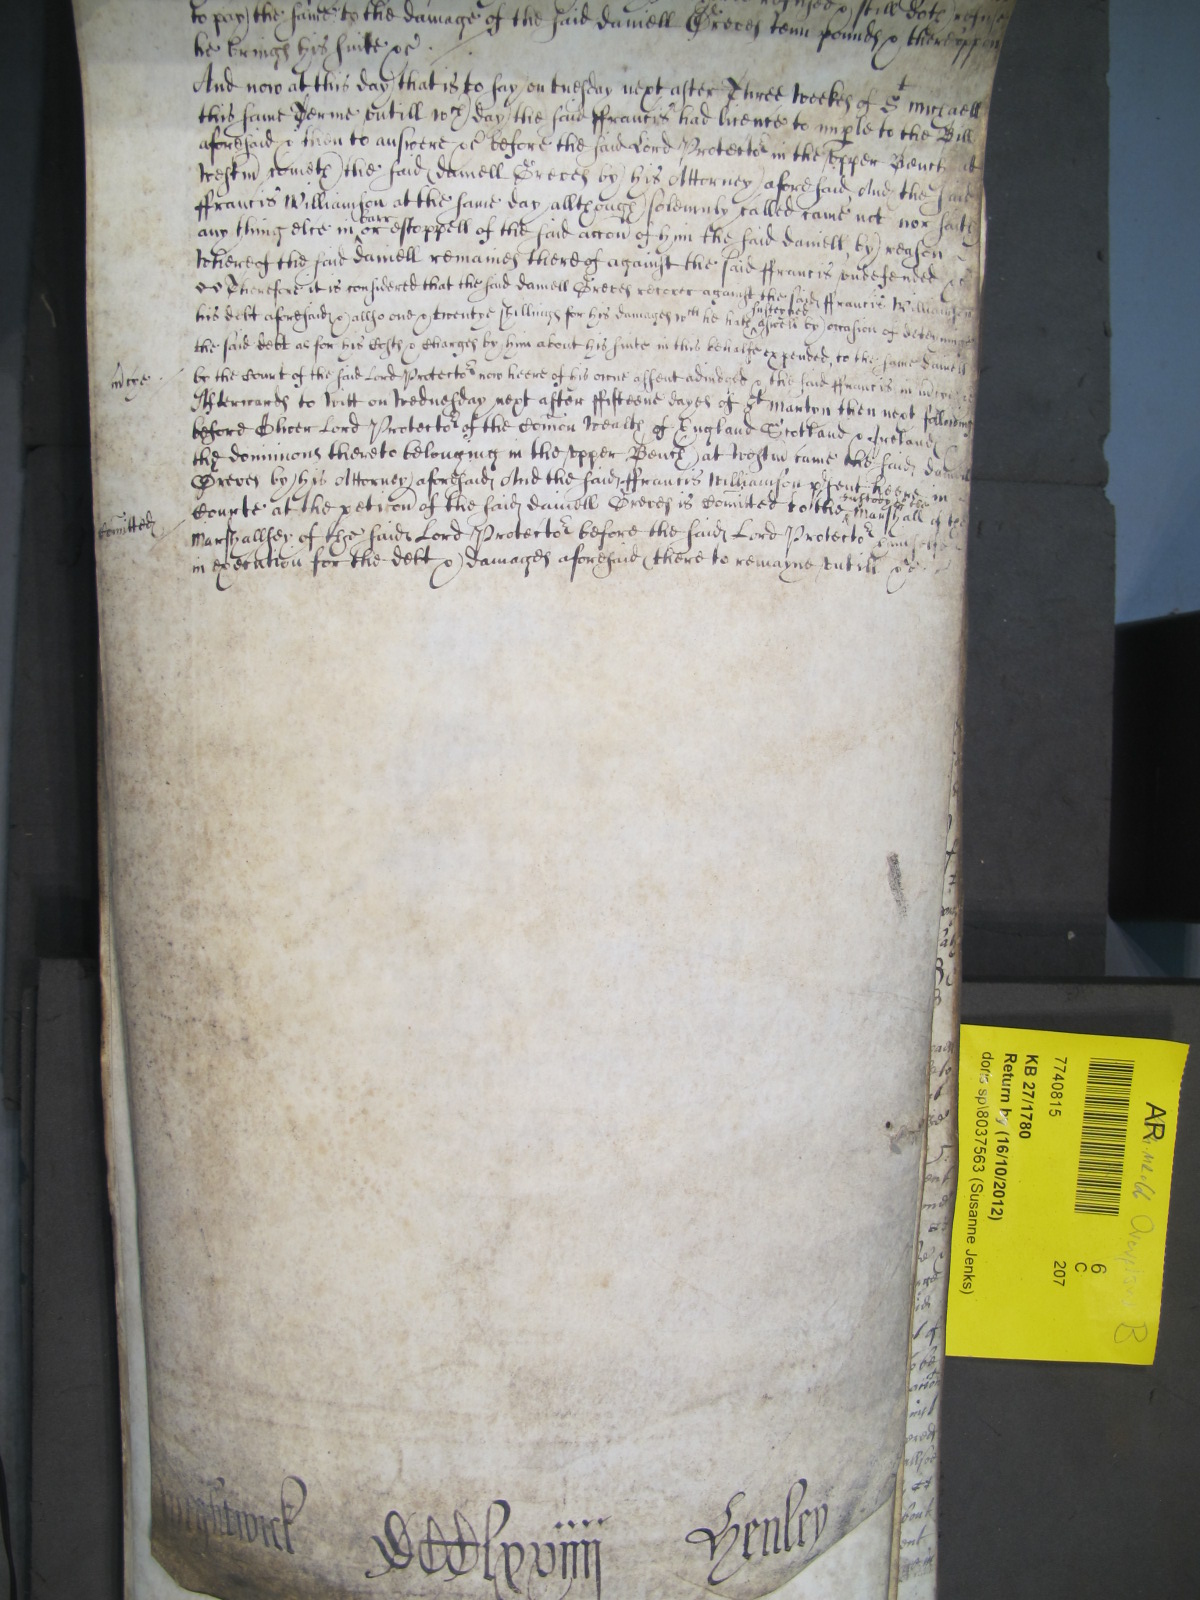 refused & still doth refuse
to pay the same to the damage of the said daniell Greces tenn pounds & thereuppon
he brings his suite &c
And now at this day that is to say on tuesday next after Three weekes of St michaell
this same Terme untill wch day the said ffrancis had licence to imple to the Bill
aforesaid & then to answere &c before the said Lord Protector in the upper Bench at
Westm cometh the said daniell Greces by his Attorney aforesaid And the said
ffrancis Williamson at the same day allthough solemnly called came not nor saith
any thing else in barr or estoppell of the said accon of him the said daniell, by reason
whereof the said daniell remaines thereof against the said ffrancis undefended &c
Therefore it is considered that the said daniell Greces recover against the said ffrancis Williamson
his debt aforesaid & allso one & twentye shillings for his damages wch he hath susteyned aswell by occasion of deteyninge
the said debt as for his Costs & Charges by him about his suite in this behalfe expended, to the same daniell
mcye by the Court of the said Lord Protector now heere of his owne assent adiudged & the said ffrancis in mcye &c
Afterwards to witt on Wednesday next after ffifteene dayes of St Martyn then next following
before Oliver Lord Protector of the Comon Wealth of England Scotland & Ireland
the dominions thereto belonging in the upper Bench at Westm came the said daniell
Greces by his Attorney aforesaid And the said ffrancis Williamson psent heere in
Comitted Courte at the peticon of the said daniell Greces is Comitted to the custody of the Marshall of the
Marshallsey of the said Lord Protector before the said Lord Protector
in execution for the debt & damages aforesaid there to remayne untill &c
wightwick DCCClxviiij Henley
AR
7740815
6
C
207
KB 27/1780
Return by (16/10/2012)
doris sp\8037563 (Susanne Jenks)